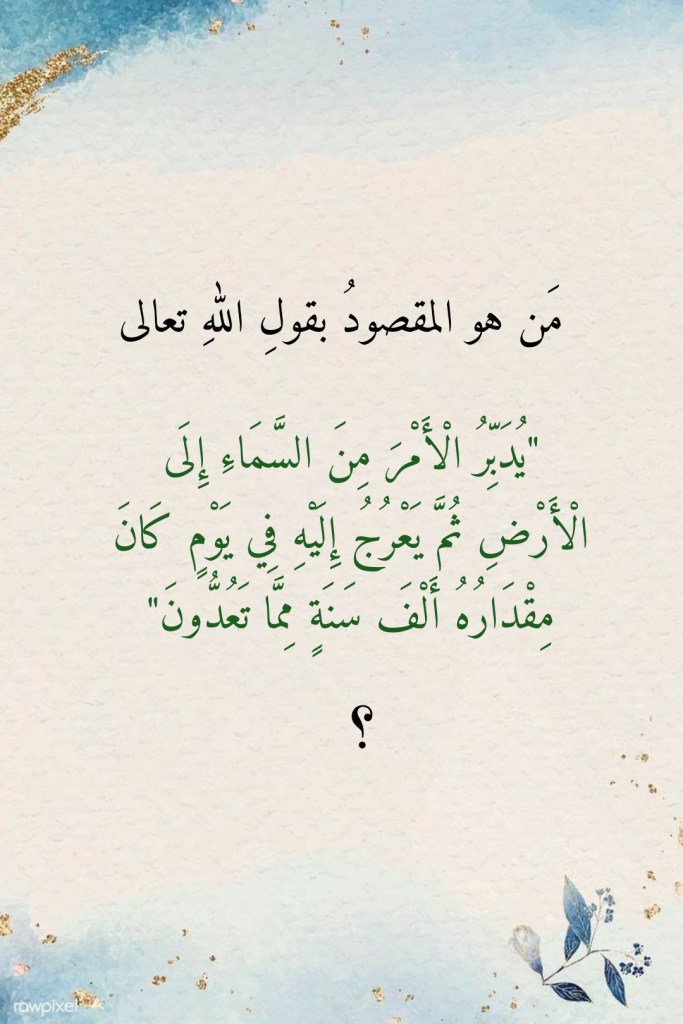 مَن هو المقصودُ بقولِ اللهِ تعالى
"يُدَبِّرُ الْأَمْرَ مِنَ السَّمَاءِ إِلَى
الْأَرْضِ ثُمَّ يَعْرُجُ إِلَيْهِ فِي يَوْمٍ كَانَ
مِقْدَارُهُ أَلْفَ سَنَةٍ مِمَّا تَعُدُّونَ"
؟
rawpixel